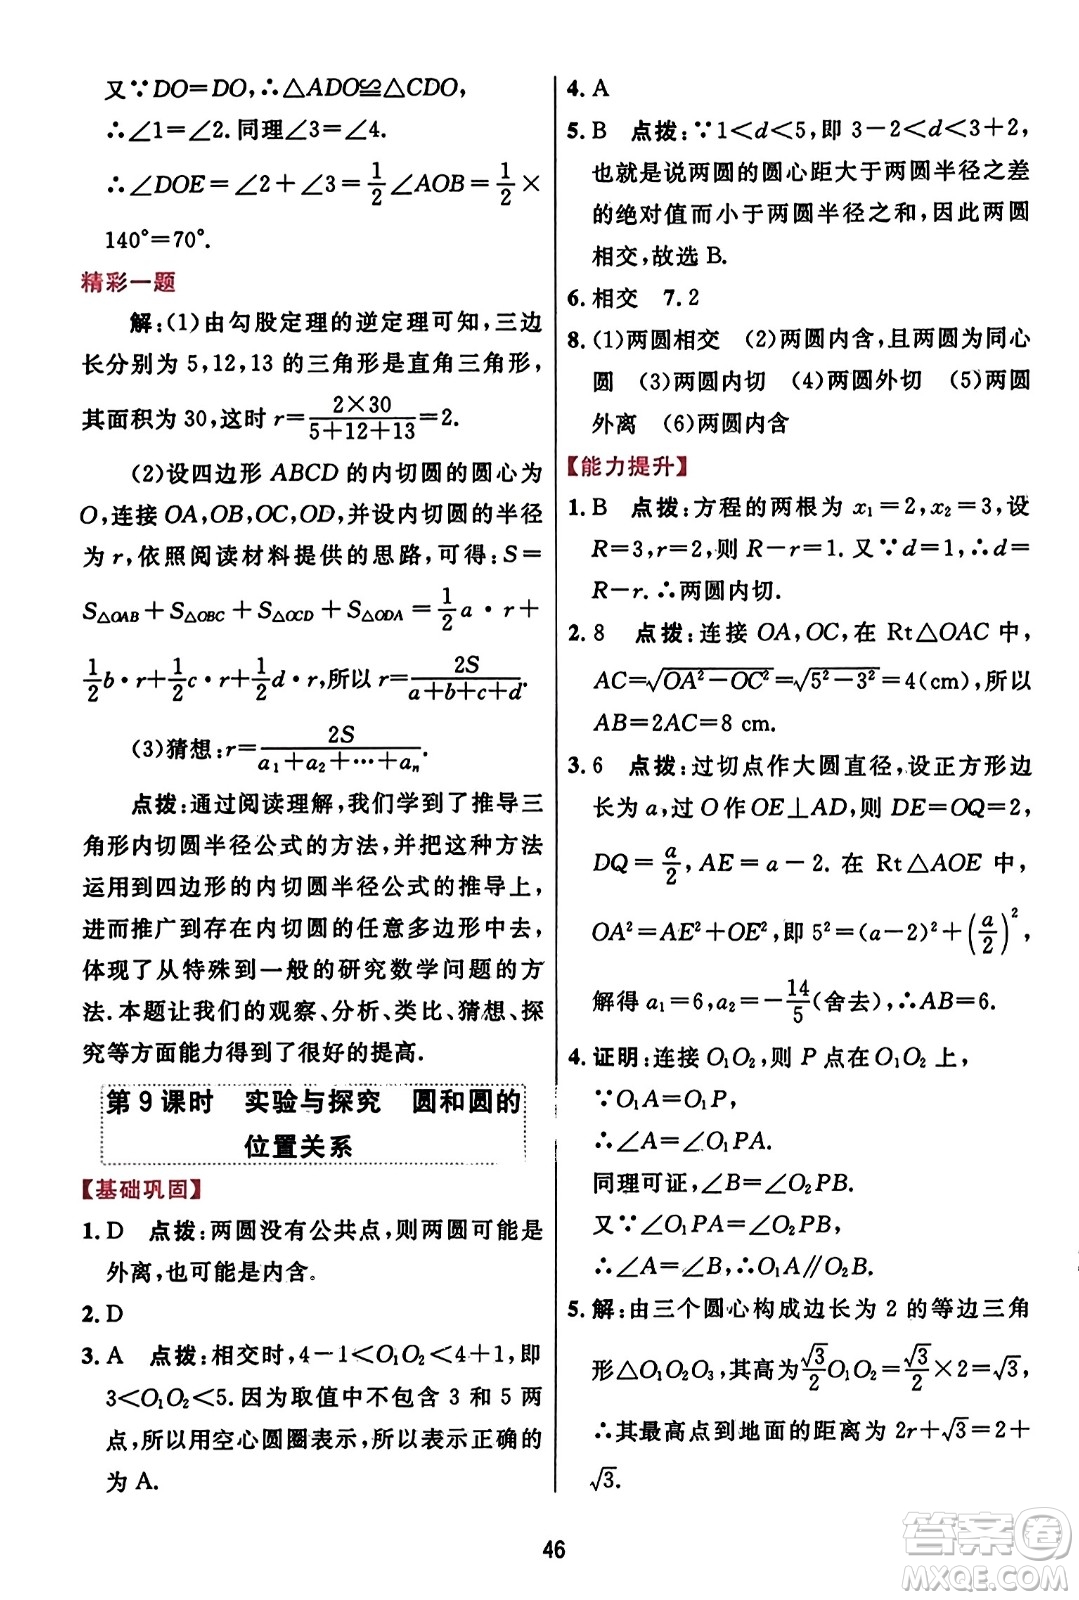 又∵DO=DO,∴△ADO≌△CDO,
∴∠1=∠2.同理∠3=∠4.
∴∠DOE=∠2+∠3=1/2∠AOB=1/2×
140°=70°.
精彩一题
解:(1)由勾股定理的逆定理可知,三边
长分别为 5,12,13 的三角形是直角三角形,
其面积为 30,这时 r=(2×30)/(5+12+13)=2.
(2)设四边形 ABCD 的内切圆的圆心为
O,连接 OA,OB,OC,OD,并设内切圆的半径
为 r,依照阅读材料提供的思路,可得:S=
S△OAB+S△OBC+S△OCD+S△ODA=1/2a·r+
1/2b·r+1/2c·r+1/2d·r,所以 r=2S/(a+b+c+d).
(3)猜想:r=2S/(a₁+a₂+⋯+aₙ).
点拨:通过阅读理解,我们学到了推导三
角形内切圆半径公式的方法,并把这种方法
运用到四边形的内切圆半径公式的推导上,
进而推广到存在内切圆的任意多边形中去,
体现了从特殊到一般的研究数学问题的方
法.本题让我们的观察、分析、类比、猜想、探
究等方面能力得到了很好的提高.
第 9 课时 实验与探究 圆和圆的
位置关系
【基础巩固】
1. D 点拨:两圆没有公共点,则两圆可能是
外离,也可能是内含。
2. D
3. A 点拨:相交时,4-1<O₁O₂<4+1,即
3<O₁O₂<5.因为取值中不包含 3 和 5 两
点,所以用空心圆圈表示,所以表示正确的
为 A.
4. A
5. B 点拨:∵1<d<5,即 3-2<d<3+2,
也就是说两圆的圆心距大于两圆半径之差
的绝对值而小于两圆半径之和,因此两圆
相交,故选 B.
6. 相交 7. 2
8. (1)两圆相交 (2)两圆内含,且两圆为同心
圆 (3)两圆内切 (4)两圆外切 (5)两圆
外离 (6)两圆内含
【能力提升】
1. B 点拨:方程的两根为 x₁=2,x₂=3,设
R=3,r=2,则 R-r=1.又∵d=1,∴d=
R-r.∴两圆内切.
2. 8 点拨:连接 OA,OC,在 Rt△OAC 中,
AC=√(OA²-OC²)=√(5²-3²)=4(cm),所以
AB=2AC=8 cm.
3. 6 点拨:过切点作大圆直径,设正方形边
长为 a,过 O 作 OE⊥AD,则 DE=OQ=2,
DQ=a/2,AE=a-2.在 Rt△AOE 中,
OA²=AE²+OE²,即 5²=(a-2)²+(a/2)²,
解得 a₁=6,a₂=-14/5(舍去),∴AB=6.
4. 证明:连接 O₁O₂,则 P 点在 O₁O₂ 上,
∵O₁A=O₁P,
∴∠A=∠O₁PA.
同理可证,∠B=∠O₂PB.
又∵∠O₁PA=∠O₂PB,
∴∠A=∠B,∴O₁A∥O₂B.
5. 解:由三个圆心构成边长为 2 的等边三角
形△O₁O₂O₃,其高为√3/2O₁O₂=√3/2×2=√3,
∴其最高点到地面的距离为 2r+√3=2+
√3.
46
答案卷
MXQE.COM